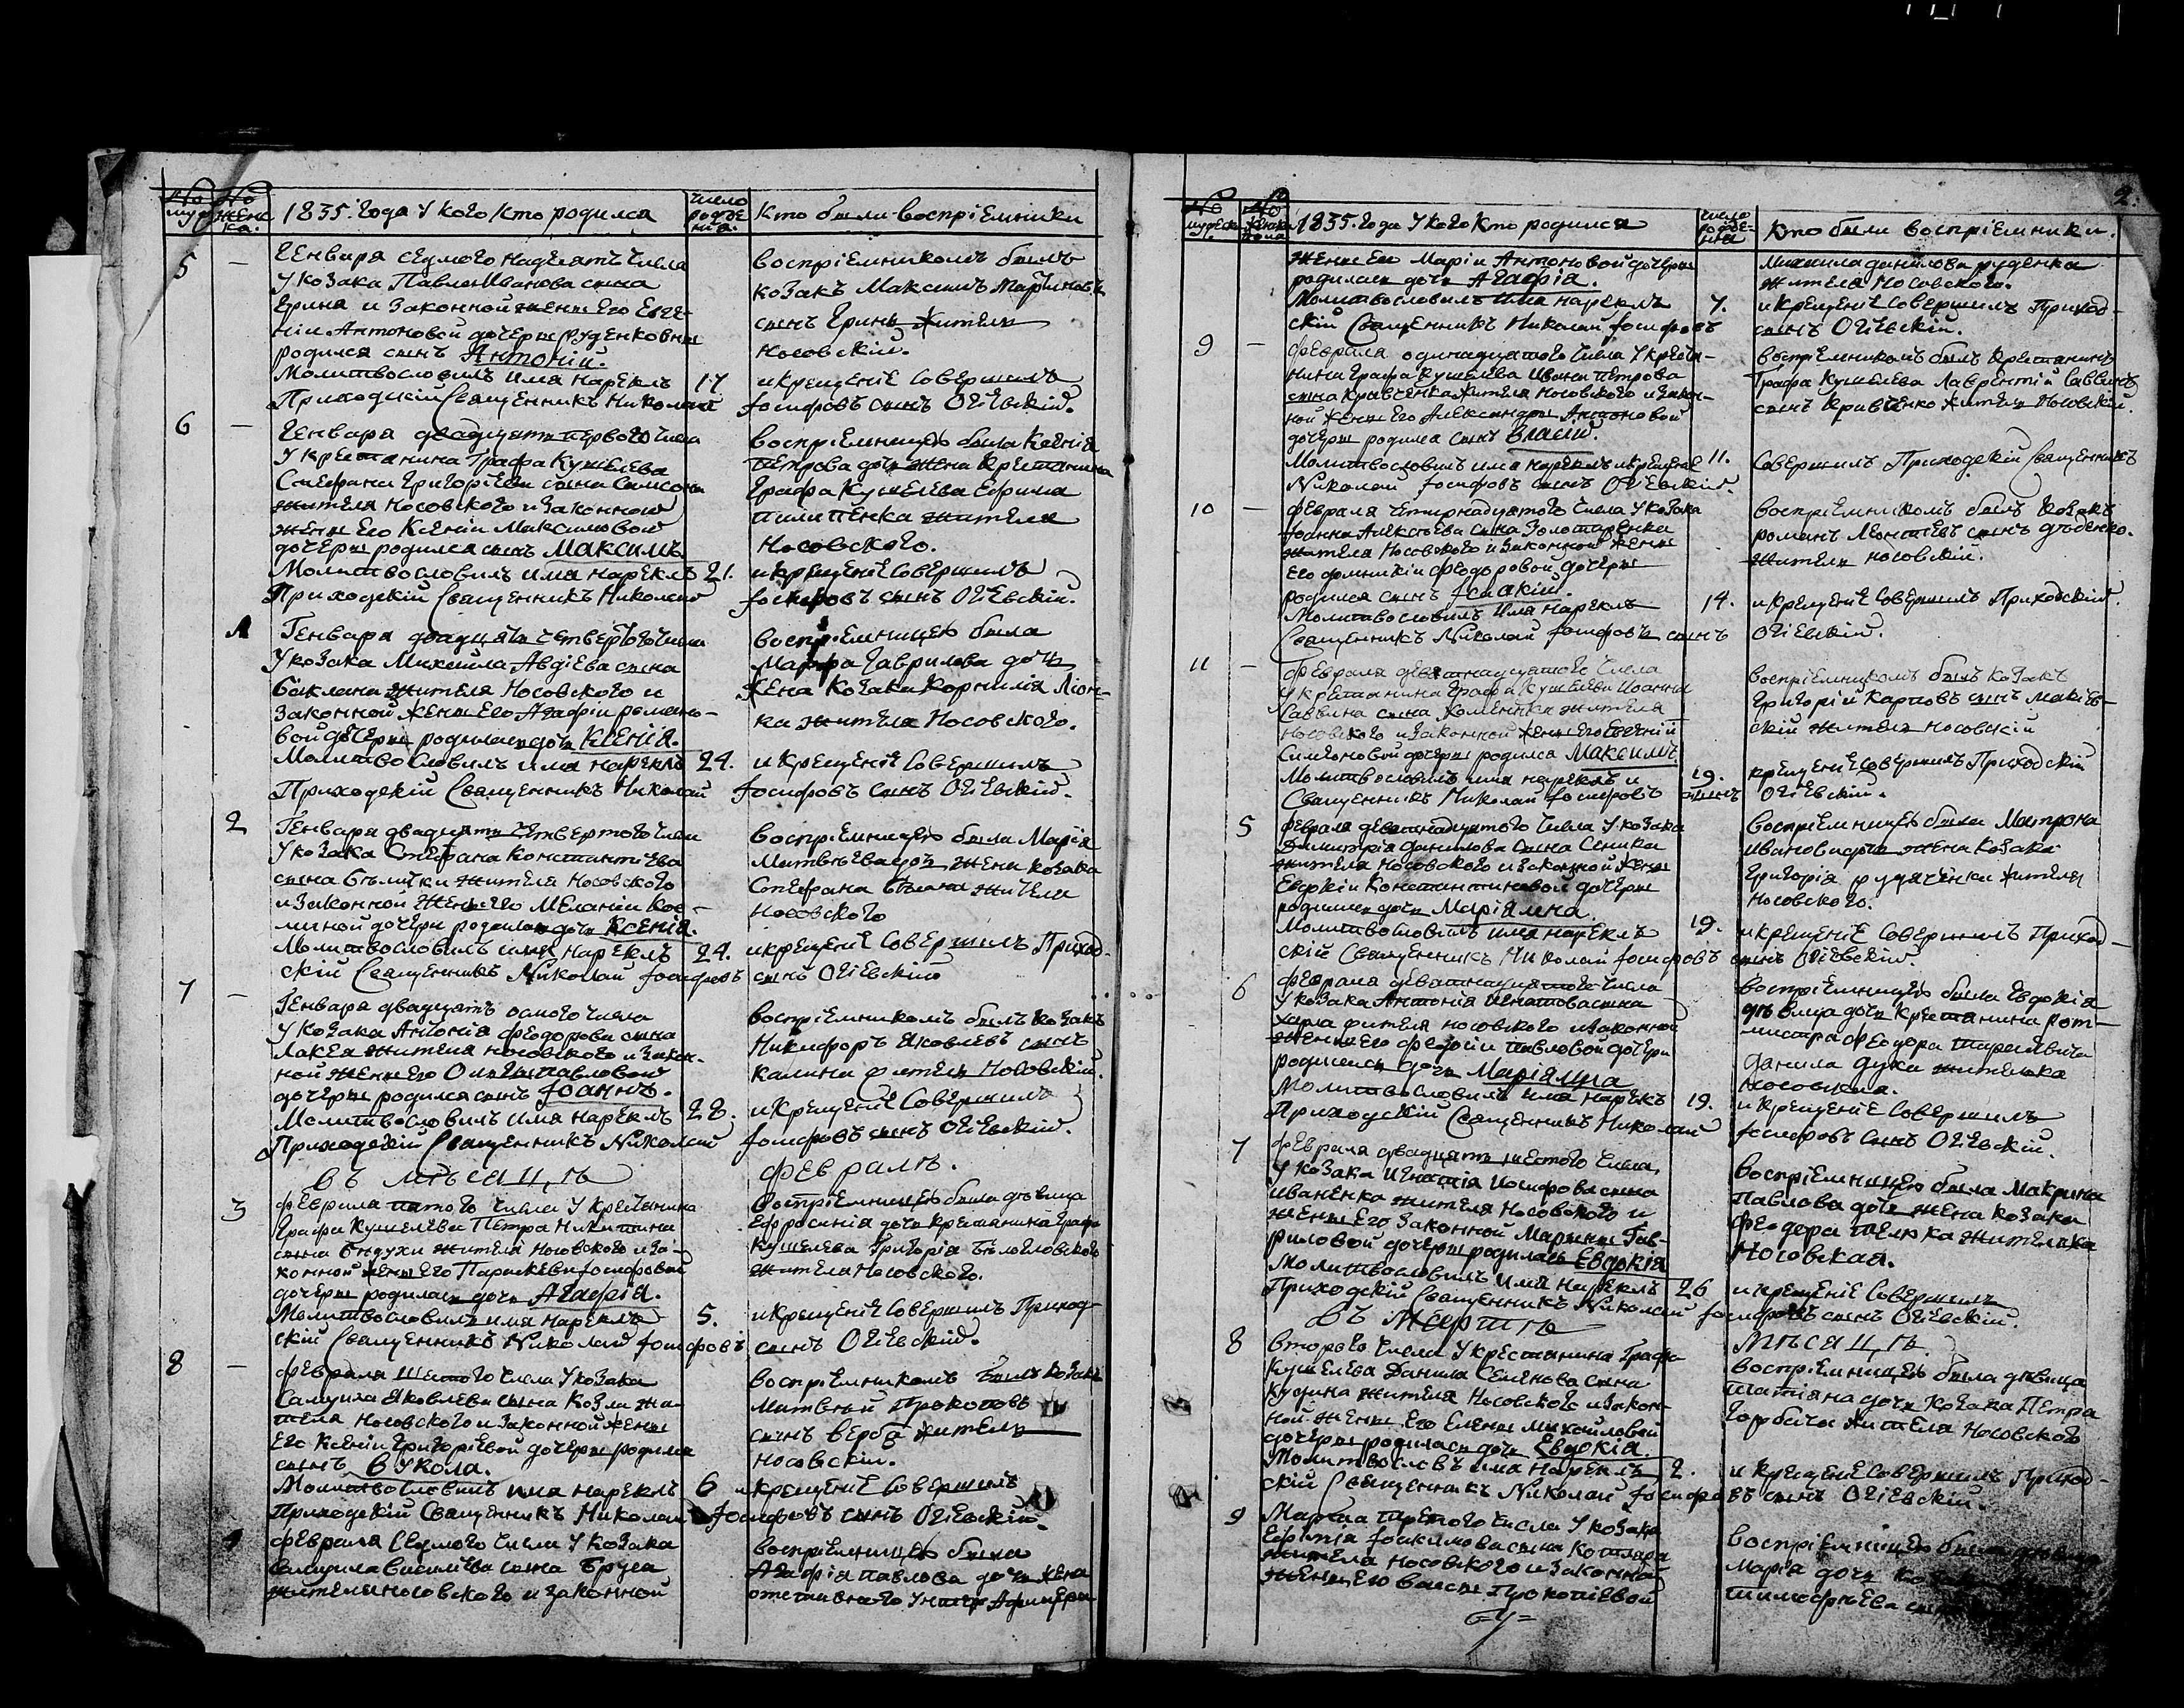 No муж No женска. 1835. года У кого кто родился число рожде ния. Кто были воспріемники
5 — Генваря седмого надесять числа
У козака Павла Иванова сына
Ерина и Законной жены Его Евге-
ніи Антоновой дочеры Руденковны
родился сынъ Антоній.
Молитвословилъ имя нарекъ 17
Приходскій Священникъ Николай
воспріемникомъ былъ
козакъ Максимъ Мартиновъ
сынъ Гринь житель
Носовскій.
и крещеніе Совершилъ
Іосифовъ сынъ Огіевскій.
6 — Генваря двадцять первого числа
У крестянина Графа Кушелева
Стефана Григоріева сына Самсона
жителя Носовского и Законной
жены Его Ксеніи Максимовой
дочеры родился сынъ Максимъ.
Молитвословилъ имя нарекъ 21.
Приходскій Священникъ Николай
воспріемницею была Ксенія
Петрова дочь жена крестянина
Графа Кушелева Ефима
Пилипенка жителя
Носовского.
и крещеніе Совершилъ
Іосифовъ сынъ Огіевскій.
1 Генваря двадцять четвертого числа
У козака Михаила Авдіева сына
Баклана жителя Носовского и
Законной жены Его Агафіи Романо-
вой дочеры родилась дочь Ксенія.
Молитвословилъ имя нарекъ 24.
Приходскій Священникъ Николай
воспріемницею была
Марфа Гаврилова дочь
Жена Козака Корнилія Ліон-
ка жителя Носовского.
и Крещеніе Совершилъ
Іосифовъ сынъ Огіевскій.
2 Генваря двадцять четвертого числа
У козака Стефана Константіева
сына Белички жителя Носовского
и Законной жены Его Меланіи Кос-
миной дочери родилась дочь Ксенія.
Молитвословилъ имя нарекъ 24.
скій Священникъ Николай Іосифовъ
воспріемницею была Марія
Матвѣева дочь жена козака
Стефана жителя
Носовского
и крещеніе Совершилъ Приход-
сынъ Огіевскій
7 — Генваря двадцять осмого числа
У козака Антонія Федорова сына
Лакея жителя Носовского и закон-
ной жены Его Ольги Павловой
дочеры родился сынъ Іоаннъ.
Молитвословилъ имя нарекъ 28.
Приходскій Священникъ Николай
воспріемникомъ былъ козакъ
Никифоръ Яковлевъ сынъ
Калина житель Носовскій.
и Крещеніе Совершилъ
Іосифовъ сынъ Огіевскій.
въ мѣсяцѣ февралѣ.
3 Февраля пятого числа У крестянина
Графа Кушелева Петра Никитина
сына Бидухи жителя Носовского и за-
конной жены Его Параскевіи Іосифовой
дочеры родилась дочь Агафія.
Молитвословилъ имя нарекъ 5.
скій Священникъ Николай Іосифовъ
воспріемницею была дѣвица
Ефросинія дочь крестянина Графа
Кушелева Григорія
жителя Носовского.
и крещеніе Совершилъ Приход-
сынъ Огіевскій.
8 — Февраля Шестого числа У козака
Самуила Яковлева сына Козла жи-
теля Носовского и законной жены
Его Ксеніи Григоріевой дочеры родился
сынъ Вукола.
Молитвословилъ имя нарекъ 6
Приходскій Священникъ Николай
воспріемникомъ былъ козакъ
Матвѣй Прокоповъ
сынъ Верба житель
Носовскій.
крещеніе Совершилъ
Іосифовъ сынъ Огіевскій.
4 Февраля Седмого числа У козака
Самуила Василіева сына Бруса
жителя Носовского и законной
воспріемницею была
Агафія Павлова дочь жена
отставного Унтер Афицера
2.
No мужеск No женск пола 1835. года У кого Кто родился число рожде-нія Кто были воспріемники.
жены Ее Маріи Антоновой дочеры
родилась дочь Агафія.
Молитвословилъ имя нарекъ 7.
скій Священникъ Николай Іосифовъ
Михаила Данилова Руденка
жителя Носовского.
и Крещеніе Совершилъ Приход-
сынъ Огіевскій.
9 — Февраля одинадцятого числа У крестя-
нина Графа Кушелева Ивана Петрова
сына Кравченка жителя Носовского и закон-
ной жены Его Александры Антоновой
дочеры родился сынъ Власій.
Молитвословилъ имя нарекъ и крещеніе 11.
Николай Іосифовъ сынъ Огіевскій.
воспріемникомъ былъ Крестянинъ
Графа Кушелева Лаврентій Саввинъ
сынъ Кравченко житель Носовскій.
Совершилъ Приходскій Священникъ
10 — Февраля четирнадцятого числа У козака
Іоанна Алексѣева сына Золотаренка
жителя Носовского и законной жены
Его Домникіи Феодоровой дочеры
родился сынъ Ісаакій.
Молитвословилъ имя нарекъ 14.
Священникъ Николай Іосифовъ сынъ
воспріемникомъ былъ козакъ
Романъ Леонтіевъ сынъ Дѣденко.
житель Носовскій.
и крещеніе Совершилъ Приходскій
Огіевскій.
11 — Февраля девятнадцятого числа
У крестянина Графа Кушелева Иоанна
Саввина сына Хоменка жителя
Носовского и законной жены Его Евгеніи
Симеоновой дочеры родился Максимъ.
Молитвословилъ имя нарекъ и 19.
Священникъ Николай Іосифовъ сынъ
воспріемникомъ былъ козакъ
Григорій Карповъ сынъ Макіев-
скій житель Носовскій
крещеніе Совершилъ Приходскій
Огіевскій.
5 Февраля девятнадцятого числа У козака
Димитрія Данилова сына Сеника
жителя Носовского и законной жены
Евдокіи Константиновой дочеры
родилась дочь Маріямна.
Молитвословилъ имя нарекъ 19.
скій Священникъ Николай Іосифовъ
воспріемницею была Матрона
Иванова дочь жена козака
Григорія Рудченка жителя
Носовского.
и крещеніе Совершилъ Приход-
сынъ Огіевскій.
6 Февраля девятнадцятого числа
У козака Антонія Игнатова сына
жителя Носовского и законной
жены Его Феодосіи Павловой дочери
родилась дочь Маріямна
Молитвословилъ имя нарекъ 19.
Приходскій Священникъ Николай
воспріемницею была Евдокія
дѣвица дочь крестянина рот-
мистра Феодора Тарасевича
Данила Духи жителька
Носовская.
и Крещеніе Совершилъ
Іосифовъ сынъ Огіевскій.
7 Февраля двадцять шестого числа,
У козака Игнатія Иосифова сына
Иваненка жителя Носовского и
жены Его Законной Марины Гав-
риловой дочеры родилась Евдокія
Молитвословилъ имя нарекъ 26
Приходскій Священникъ Николай
воспріемницею была Макрина
Павлова дочь жена козака
Феодора Телюка жителька
Носовская.
и крещеніе Совершилъ
Іосифовъ сынъ Огіевскій.
въ Мартѣ мѣсяцѣ.
8 второго числа У крестянина Графа
Кушелева Данила Семенова сына
Кудина жителя Носовского и закон-
ной жены Его Елены Михайловой
дочеры родилась дочь Евдокія.
Молитвословъ имя нарекъ 2.
скій Священникъ Николай Іосифо
воспріемницею была дѣвица
Татіяна дочь козака Петра
Горбача жителя Носовского
и Крещеніе Совершилъ Приход-
въ сынъ Огіевскій.
9 Марта третого числа У козака
Ефимія Іоакимова сына Котляра
жителя Носовского и законной
жены Его Прокопіевой
воспріемницею была дѣвица
Марія дочь
Тимофѣева